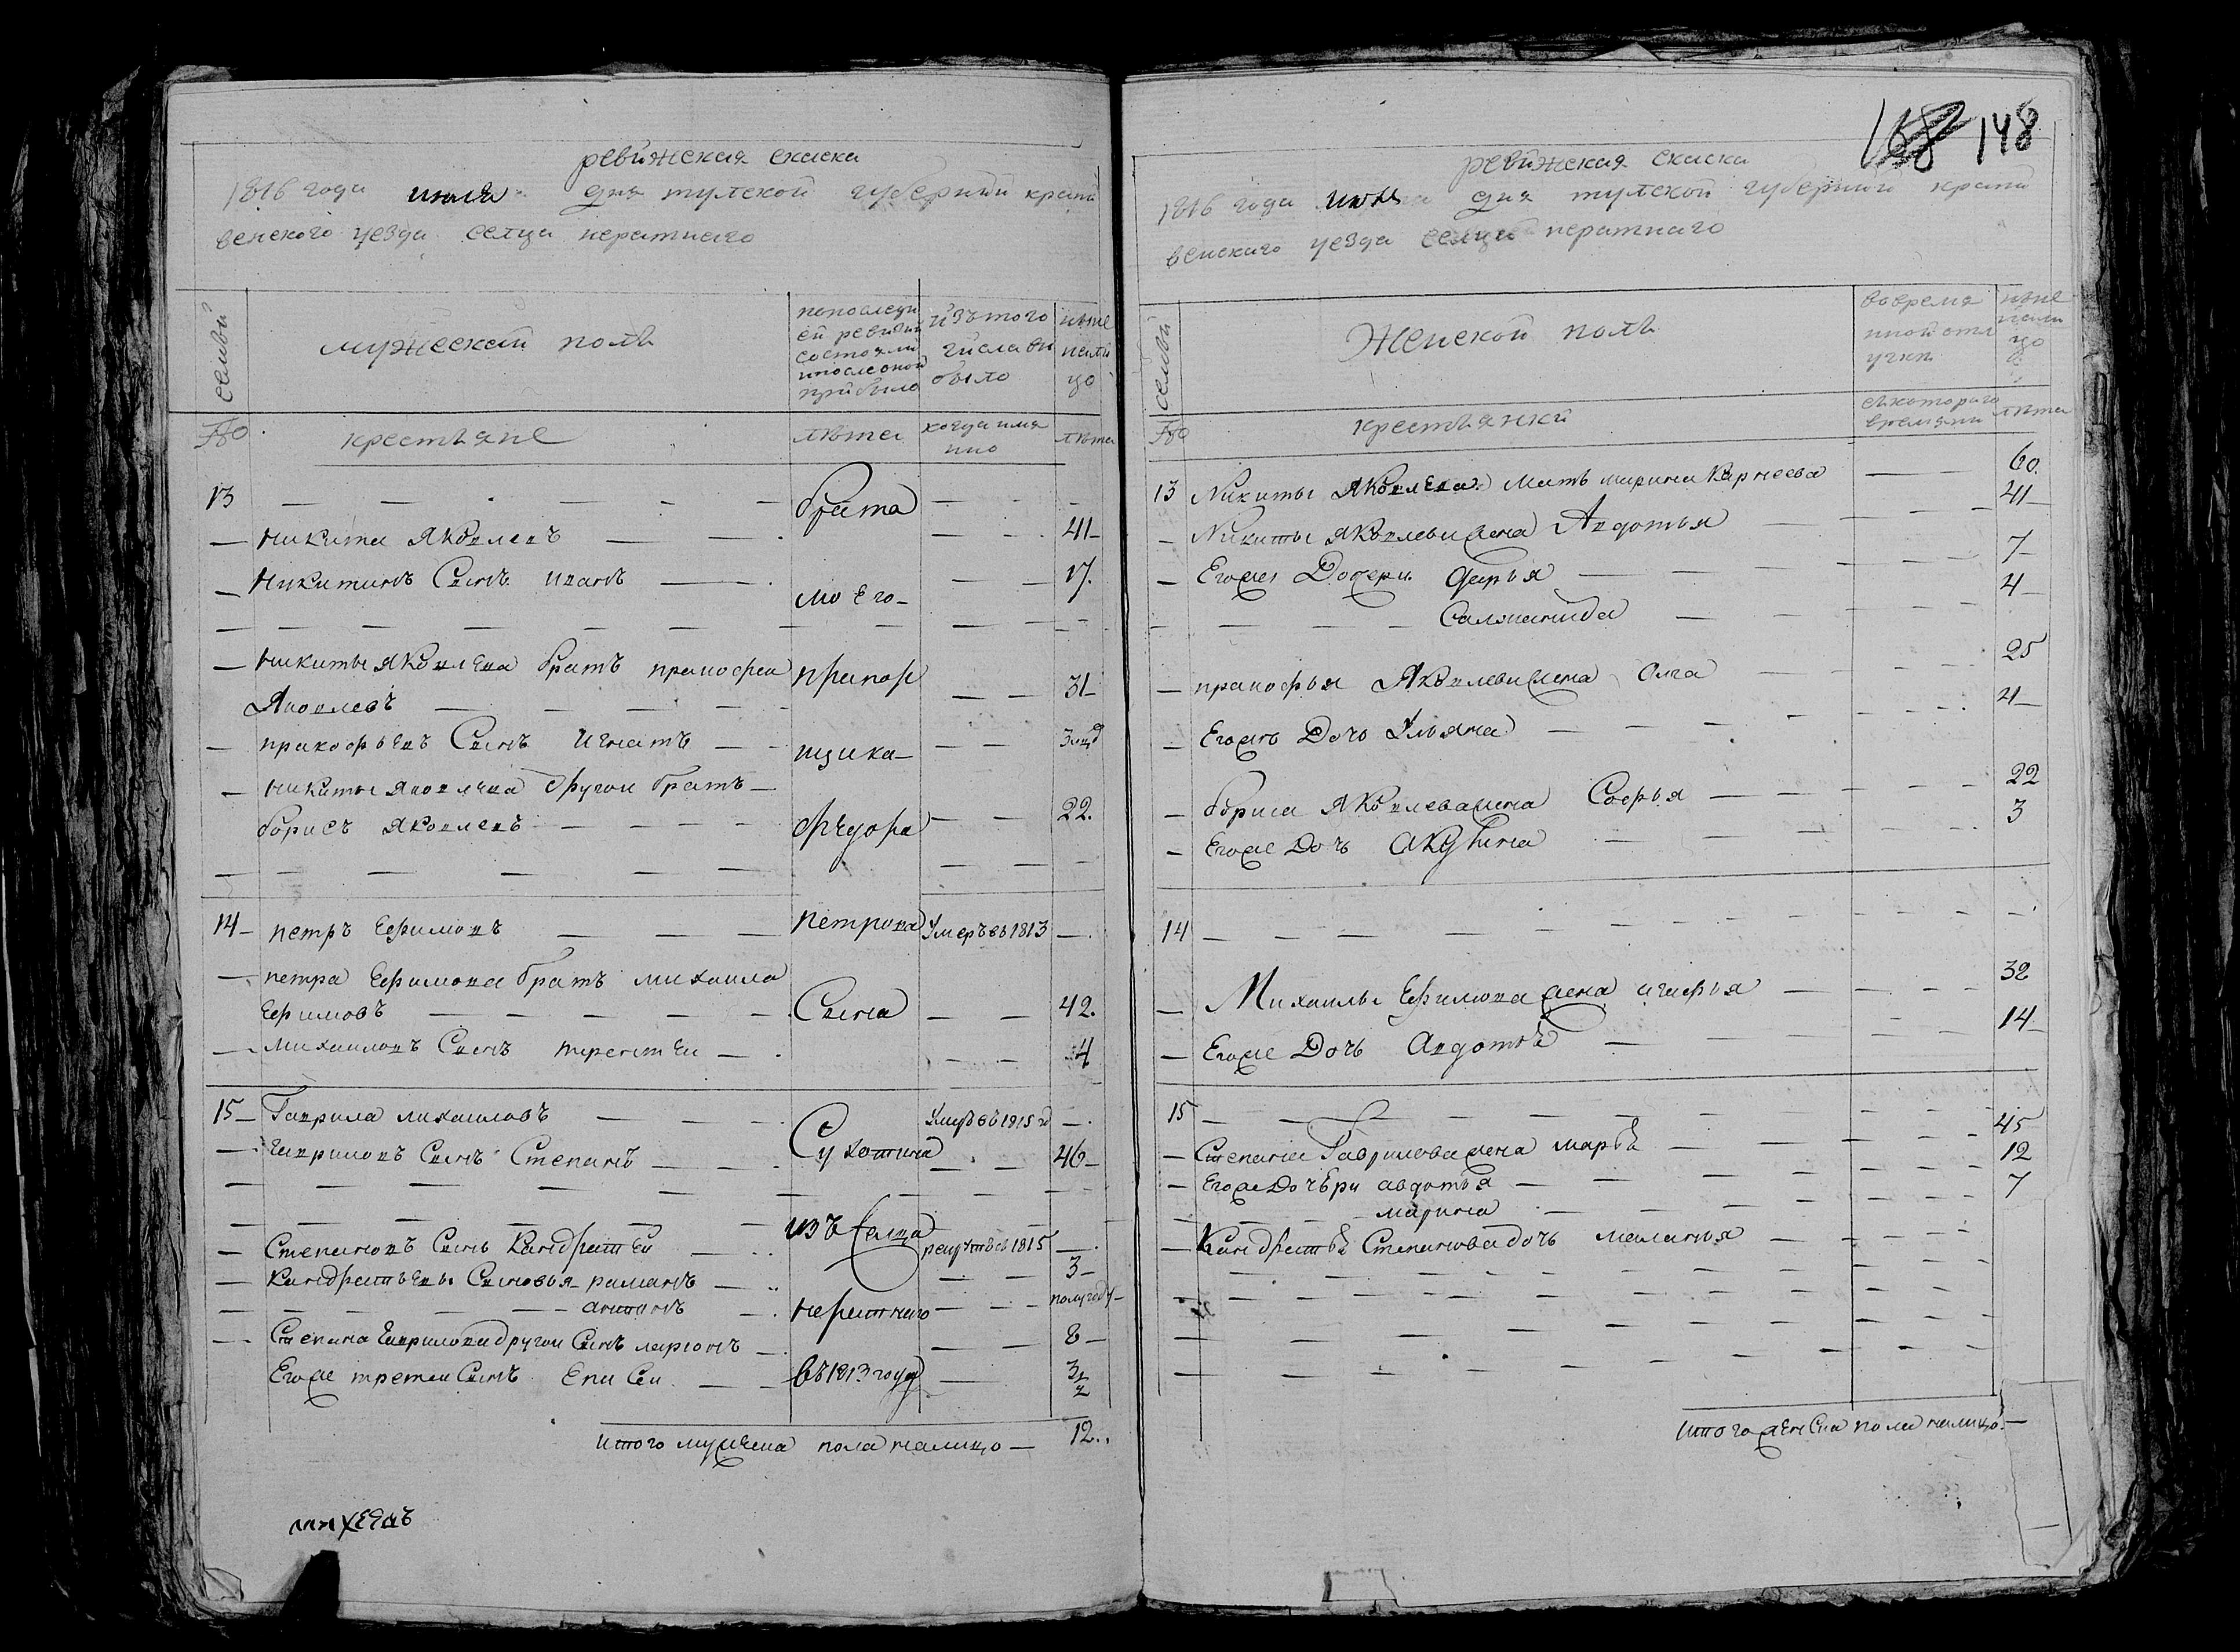 ревижская скаска
1816 года июля дня тулской губернии крапи
венского уезда селца нератного
семьи
мужескай полъ
попоследн
ей ревизии
состояло
ипослеоной
прибыло
изътого
числа вы
было
ныне
нали
цо
№
крестьяне
лѣта
когда имя
нно
лѣта
13 — — — — — брата — — —
— никита яковлевъ — — — — 41
— никитинъ Сынъ иванъ — — — — 17.
моего
— никиты яковлева братъ пракофеи прапор
Яковлевъ — — — — — — 31
— пракофьевъ Сынъ игнатъ — — щика — —
— никиты яковлева другои братъ —
борисъ яковлевъ — — — — фѣдора — — 22.
14 — петръ Ефимовъ — — — петрова Умеръ въ 1813 —
— петра Ефимова братъ михаила
Ефимовъ — — — — — Сына — — 42.
— михаиловъ Сынъ терентеи — — — 4
15 — Гаврила михаиловъ — — — Умеръ въ 1815 го —
— гавриловъ Сынъ Степанъ — — — Сухотина — — 46
изъ селца
— Степановъ Сынъ Кандратеи — — рекрутъ въ 1815 —
— Кандратьевы Сыновья раманъ — — — — 3
— — — — — антонъ — нератного — — — полугоду
— Степана Гаврилова другои Сынъ ларионъ — — — 8
Егоже третеи Сынъ Елисеи — — въ 1813 году — 3 1/2
итого мужеска пола налицо — 12..
михѣевъ
148
ревижская скаска
1816 года июля дня тулской губернии крапи
венскаго уезда селца нератнаго
семьи
Женской полъ
вовремя
нной отл
учки
ныне
нали
цо
№
крестьянки
скотораго
времяни
лѣта
13 Никиты Яковлева мать марина Карнеева — — 60.
— Никиты яковлева жена Авдотья — — — 41
— Егоже Дочери Дарья — — — 7
— — — — Саламанида — — — 4
— пракофья Яковлева жена Олга — — — 25
— Егоже Дочь Ульяна — — — 4
— бориса Яковлева жена Софья — — — 22
— Егоже Дочь Акулина — — — 3
14 — — — — — — — —
— Михаилы Ефимова жена агафья — — — 32
— Егоже Дочь Авдотья — — — 14
15 — — — — — — — —
— Степана Гаврилова жена марья — — — 45
— Егоже Дочери авдотья — — — 12
— — — — марина — — — 7
— Кандратья Степанова дочь меланья — — —
итого женска пола налицо —